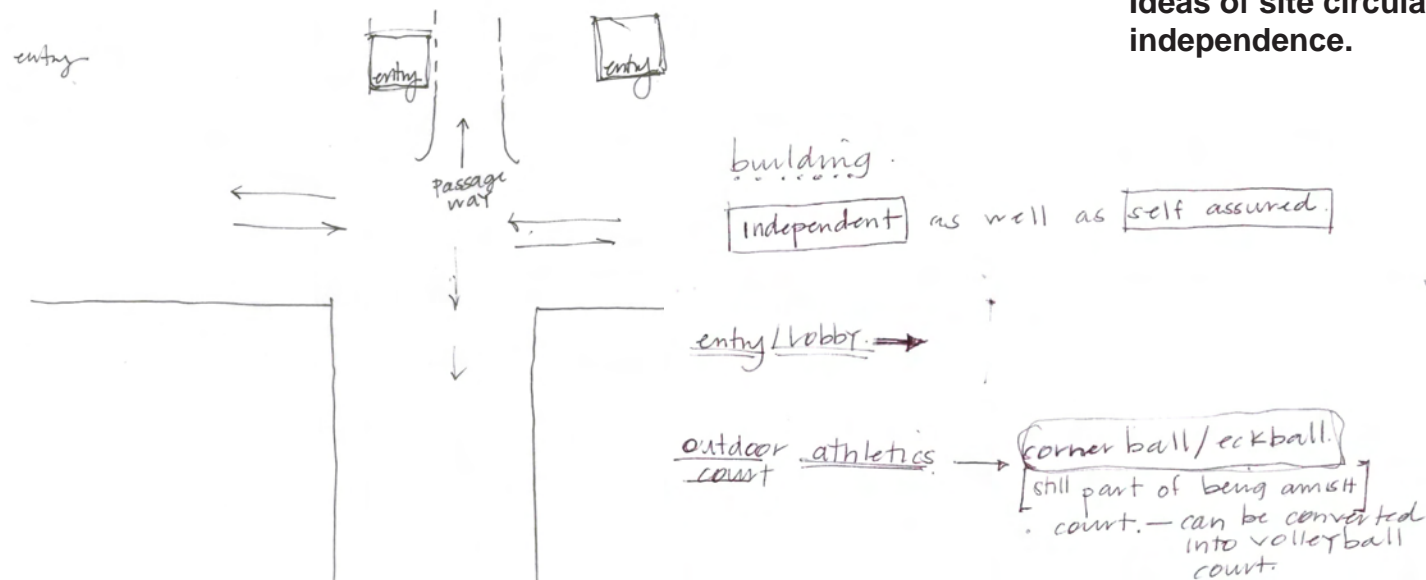 Ideas of site circula
independence.
entry
entry
entry
passage
way
building.
independent as well as self assured.
entry / lobby.
outdoor athletics
court
corner ball / eckball.
still part of being amish
court. — can be converted
into volleyball
court.